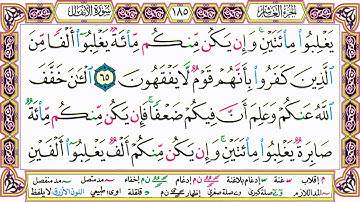 الجزء العاشر ١٨٥ سورة الأنفال
يَغْلِبُوا۟ مِا۟ئَتَيْنِ ۚ وَإِن يَكُن مِّنكُم مِّا۟ئَةٌ يَغْلِبُوٓا۟ أَلْفًا مِّنَ
ٱلَّذِينَ كَفَرُوا۟ بِأَنَّهُمْ قَوْمٌ لَّا يَفْقَهُونَ ٦٥ ٱلْـَٰٔنَ خَفَّفَ
ٱللَّهُ عَنكُمْ وَعَلِمَ أَنَّ فِيكُمْ ضَعْفًا ۚ فَإِن يَكُن مِّنكُم مِّا۟ئَةٌ
صَابِرَةٌ يَغْلِبُوا۟ مِا۟ئَتَيْنِ ۚ وَإِن يَكُن مِّنكُمْ أَلْفٌ يَغْلِبُوٓا۟ أَلْفَيْنِ
م إقلاب غنة إدغام بلاغنة إدغام إخفاء مد متصل مد منفصل
المد اللازم صلة كبرى صلة صغرى إظهار قلقلة أوى طبيعي اللون الأزرق لا يلفظ